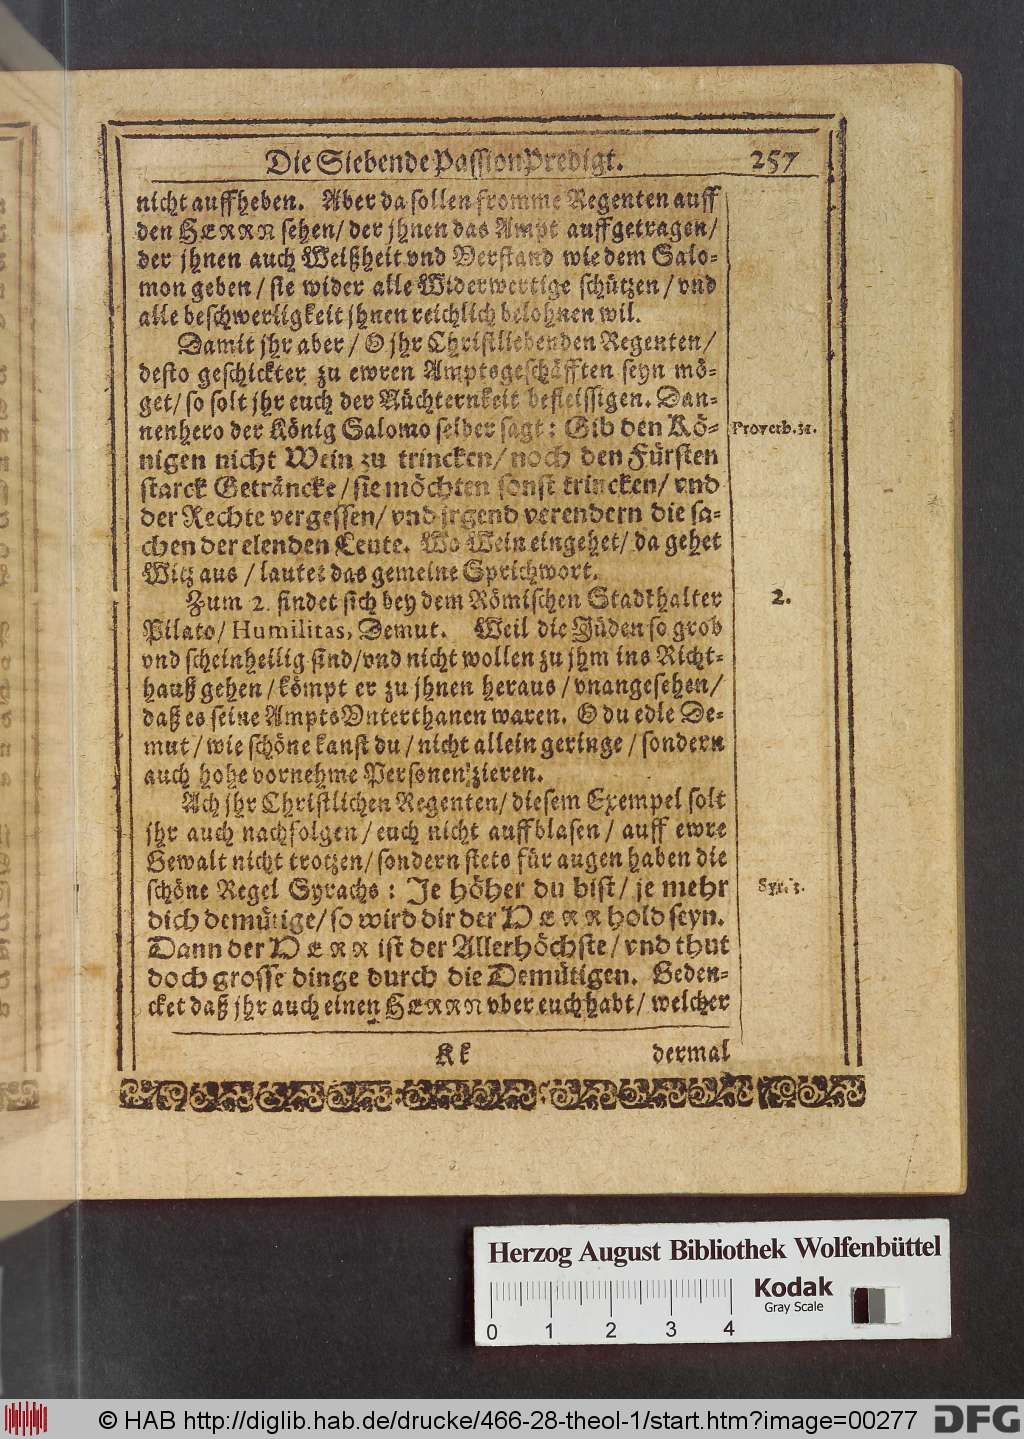 Die Siebende PassionPredigt. 257
nicht auffheben. Aber da sollen fromme Regenten auff
den HERRN sehen/ der jhnen das Ampt auffgetragen/
der jhnen auch Weißheit vnd Verstand wie dem Salo-
mon geben/ sie wider alle Widerwertige schützen/ vnd
alle beschwerligkeit jhnen reichlich belohnen wil.
Damit jhr aber/ O jhr Christliebenden Regenten/
desto geschickter zu ewren Amptsgeschäfften seyn mö-
get/ so solt jhr euch der Nüchternkeit befleissigen. Dan-
nenhero der König Salomo selber sagt: Gib den Kö- Proverb.31.
nigen nicht Wein zu trincken/ noch den Fürsten
starck Geträncke/ sie möchten sonst trincken/ vnd
der Rechte vergessen/ vnd jrgend verendern die sa-
chen der elenden Leute. Wo Wein eingehet/ da gehet
Witz aus/ lautet das gemeine Sprichwort.
Zum 2. findet sich bey dem Römischen Stadthalter 2.
Pilato/ Humilitas, Demut. Weil die Jüden so grob
vnd scheinheilig sind/ vnd nicht wollen zu jhm ins Richt-
hauß gehen/ kömpt er zu jhnen heraus/ vnangesehen/
daß es seine AmptsVnterthanen waren. O du edle De-
mut/ wie schöne kanst du/ nicht allein geringe/ sondern
auch hohe vornehme Personen zieren.
Ach jhr Christlichen Regenten/ diesem Exempel solt
jhr auch nachfolgen/ euch nicht auffblasen/ auff ewre
Gewalt nicht trotzen/ sondern stets für augen haben die
schöne Regel Syrachs: Je höher du bist/ je mehr Syr. 3.
dich demütige/ so wird dir der HERR hold seyn.
Dann der HERR ist der Allerhöchste/ vnd thut
doch grosse dinge durch die Demütigen. Geden-
cket daß jhr auch einen HERRN vber euch habt/ welcher
Kk dermal
Herzog August Bibliothek Wolfenbüttel
Kodak
Gray Scale
0 1 2 3 4
© HAB http://diglib.hab.de/drucke/466-28-theol-1/start.htm?image=00277 DFG